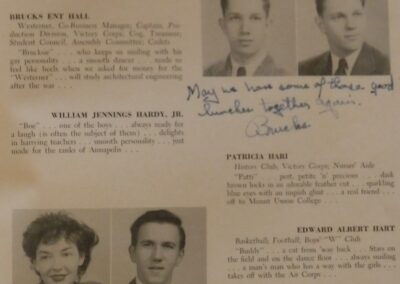 BRUCKS ENF HALL
Westerner, Co-Business Manager, Captain, Pro-
duction Division, Victory Corps; Cog, Treasurer;
Student Council, Assembly Committee; Cadets
"Bruckse" . . . who keeps us smiling with his
gay personality . . . a smooth dancer . . . made us
feel like heels when we asked for money for the
"Westerner" . . . will study architectural engineering
after the war . . .
May we have some of those good
lunches together again.
Brucks
WILLIAM JENNINGS HARDY, JR.
"Boe" . . . one of the boys . . . always ready for
a laugh (is often the subject of them) . . . delights
in harrying teachers . . . smooth personality . . . just
made for the ranks of Annapolis . . .
PATRICIA HARI
History Club; Victory Corps; Nurses' Aide
"Patti" . . . pert, petite 'n' precious . . . dark
brown locks in an adorable feather cut . . . sparkling
blue eyes with an impish glint . . . a real friend . . .
off to Mount Union College . . .
EDWARD ALBERT HART
Basketball; Football; Boys' "W" Club
"Budds" . . . a cat from 'way back . . . Stars on
the field and on the dance floor . . . always smiling
. . . a man's man who has a way with the girls . . .
takes off with the Air Corps . . .